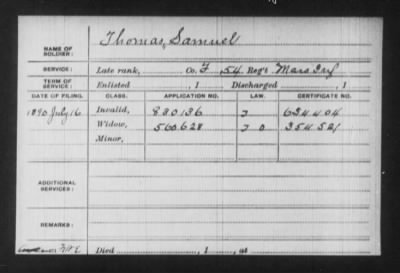 NAME OF SOLDIER: Thomas, Samuel
SERVICE: Late rank, Co. F, 54 Reg't Mass Inf
TERM OF SERVICE: Enlisted , 1 Discharged , 1
DATE OF FILING. CLASS. APPLICATION NO. LAW. CERTIFICATE NO.
1890 July 16 Invalid, 830136 J 634404
Widow, 560628 J D 354521
Minor,
ADDITIONAL SERVICES:
REMARKS:
Died , 1 , at